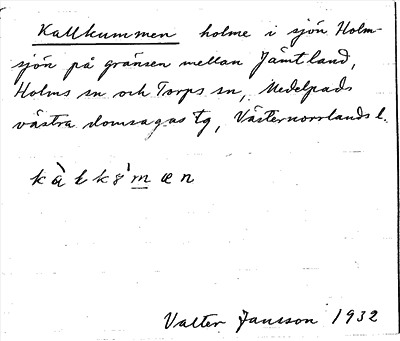 Kallkummen holme i sjön Holm-
sjön på gränsen mellan Jämtland,
Holms sn och Torps sn, Medelpads
västra domsagas tg, Västernorrlands l.
Valter Jansson 1932